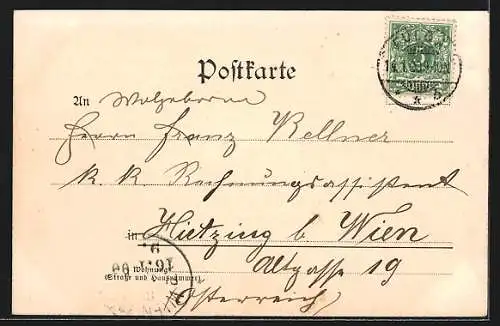 Postkarte
An Wolgeboren
Herrn Franz Kellner
k. k. Rechnungsassistent
in Hietzing b Wien
Wohnung
(Straße und Hausnummer)
Altgasse 19
Österreich
16.1.00